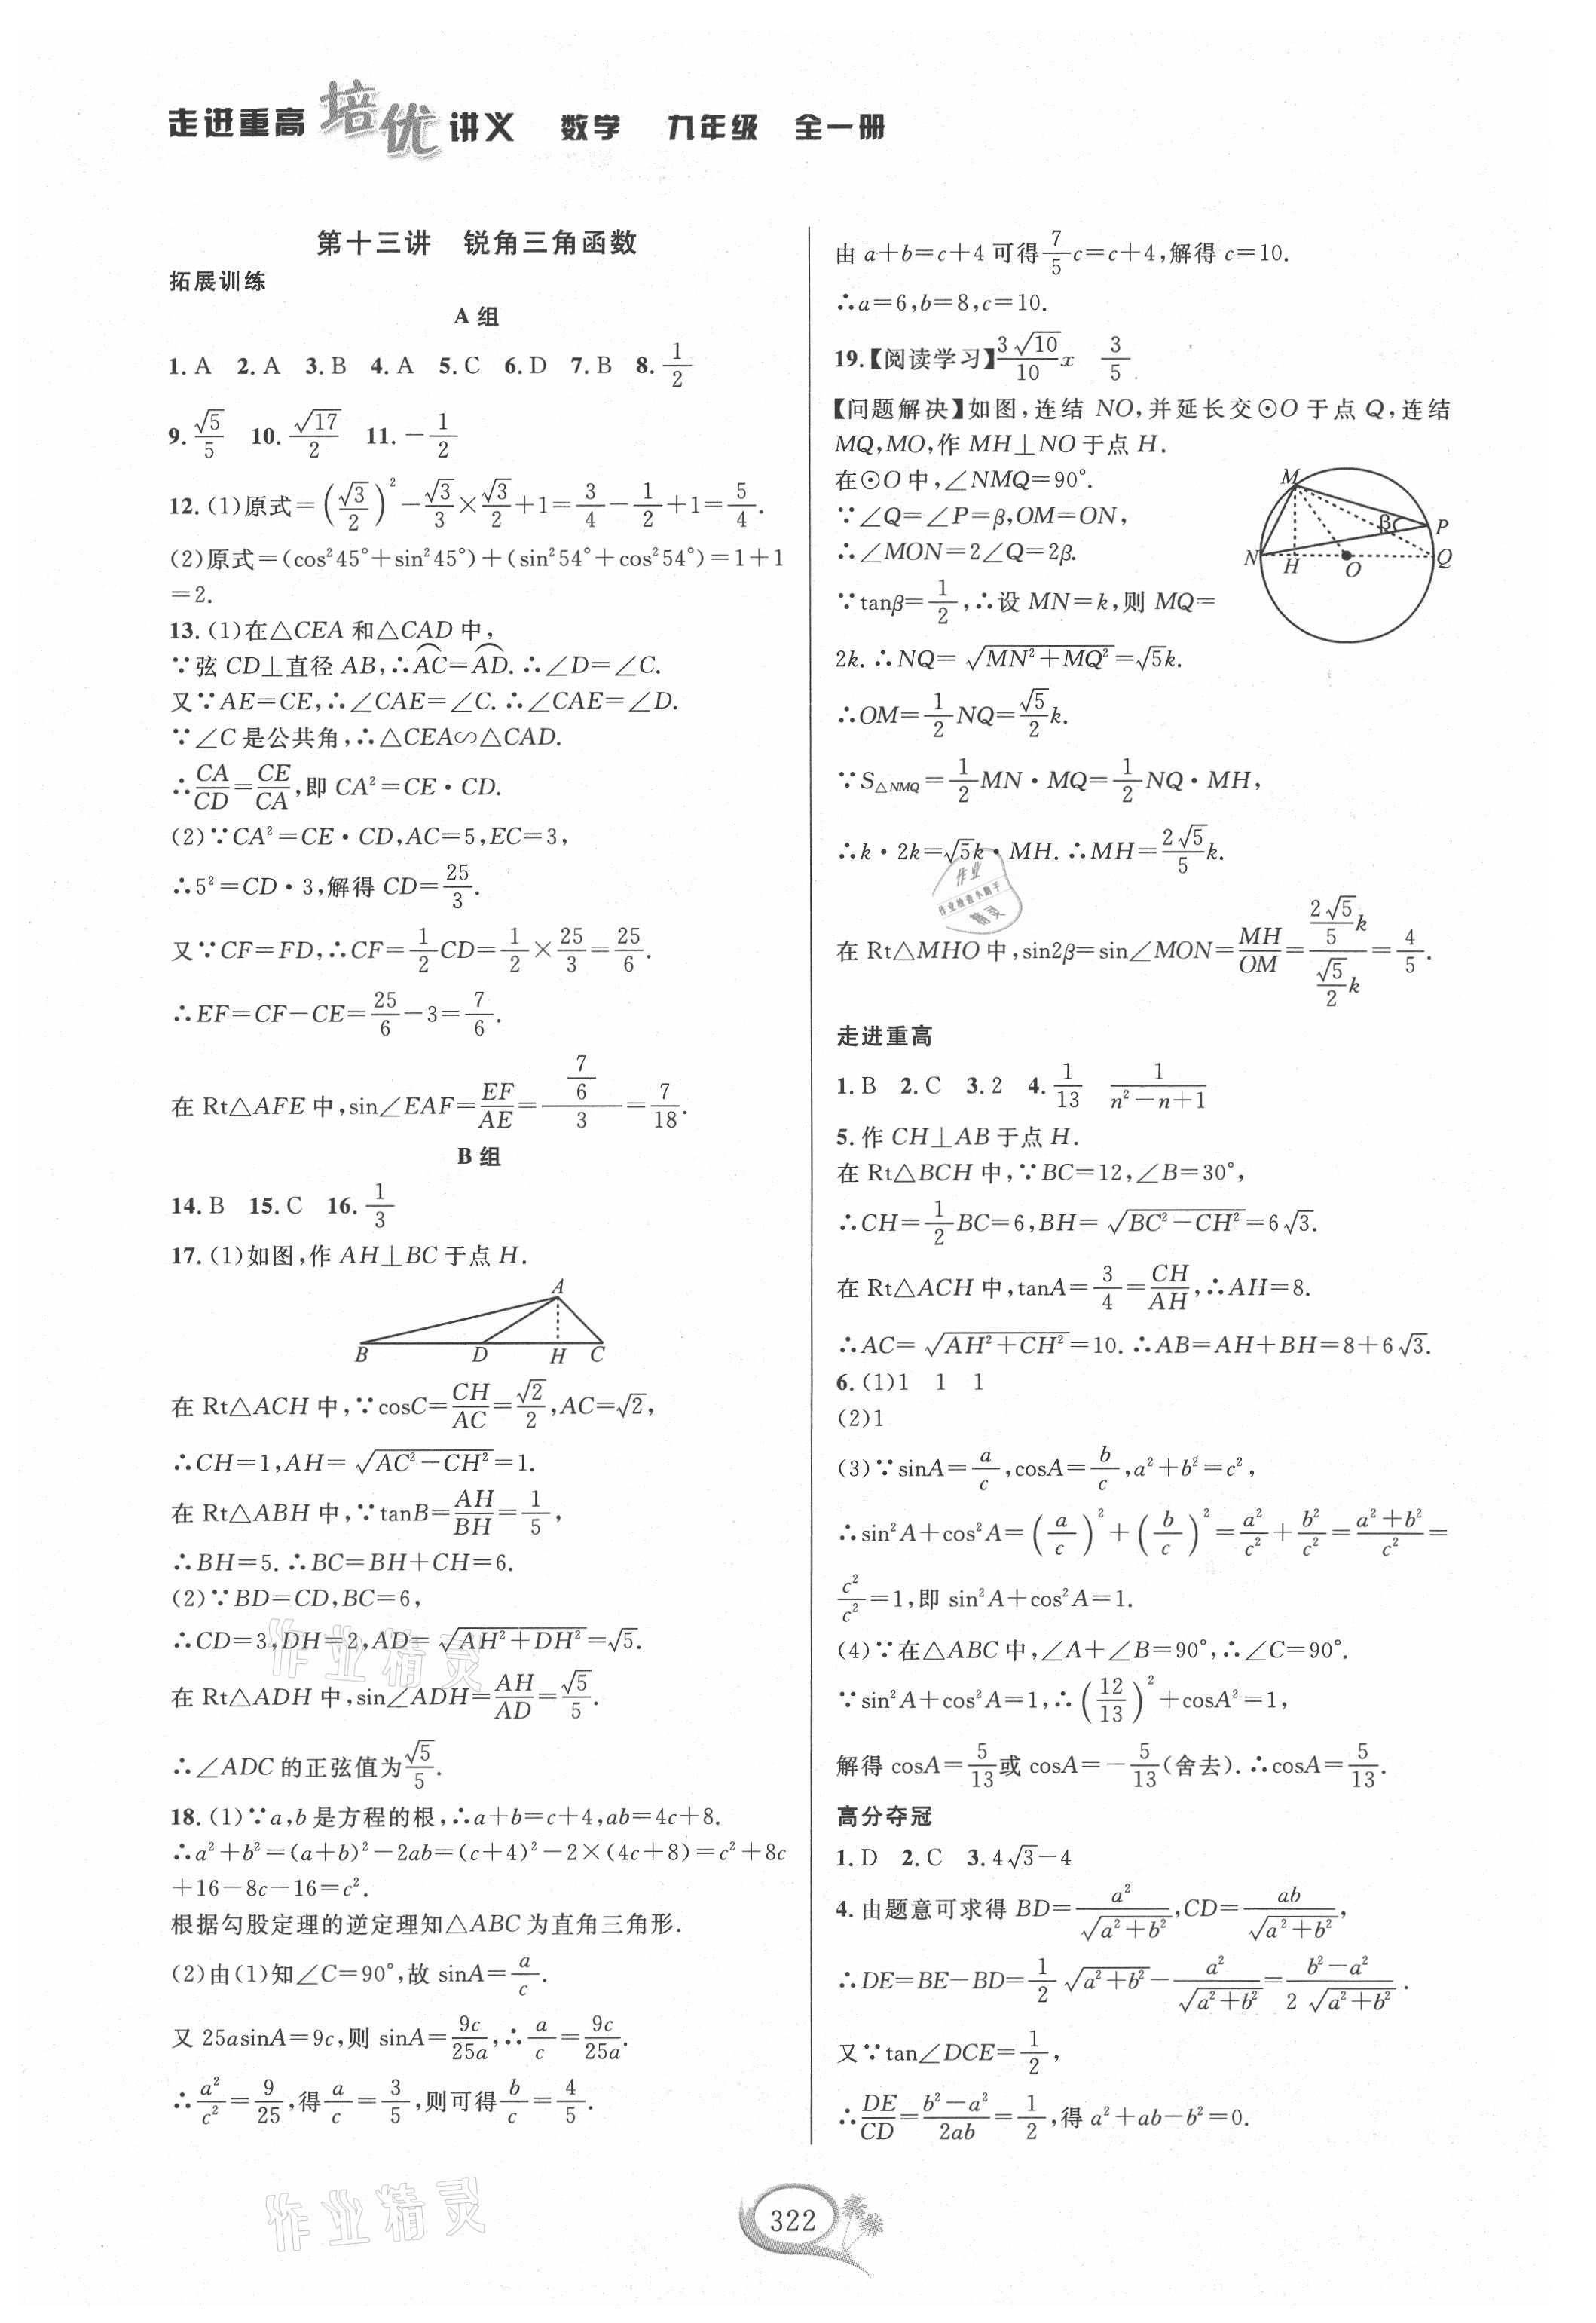 走进重高 培优 讲义 数学 九年级 全一册
第十三讲 锐角三角函数
拓展训练
A 组
1. A 2. A 3. B 4. A 5. C 6. D 7. B 8. 1/2
9. √5/5 10. √17/2 11. −1/2
12. (1)原式=(√3/2)²−√3/3×√3/2+1=3/4−1/2+1=5/4.
(2)原式=(cos²45°+sin²45°)+(sin²54°+cos²54°)=1+1
=2.
13. (1)在△CEA 和△CAD 中,
∵弦 CD⊥直径 AB,∴A͡C=A͡D. ∴∠D=∠C.
又∵AE=CE,∴∠CAE=∠C. ∴∠CAE=∠D.
∵∠C 是公共角,∴△CEA∽△CAD.
∴CA/CD=CE/CA,即 CA²=CE·CD.
(2)∵CA²=CE·CD,AC=5,EC=3,
∴5²=CD·3,解得 CD=25/3.
又∵CF=FD,∴CF=1/2CD=1/2×25/3=25/6.
∴EF=CF−CE=25/6−3=7/6.
在 Rt△AFE 中,sin∠EAF=EF/AE=(7/6)/3=7/18.
B 组
14. B 15. C 16. 1/3
17. (1)如图,作 AH⊥BC 于点 H.
A
B D H C
在 Rt△ACH 中,∵cosC=CH/AC=√2/2,AC=√2,
∴CH=1,AH=√(AC²−CH²)=1.
在 Rt△ABH 中,∵tanB=AH/BH=1/5,
∴BH=5. ∴BC=BH+CH=6.
(2)∵BD=CD,BC=6,
∴CD=3,DH=2,AD=√(AH²+DH²)=√5.
在 Rt△ADH 中,sin∠ADH=AH/AD=√5/5.
∴∠ADC 的正弦值为√5/5.
18. (1)∵a,b 是方程的根,∴a+b=c+4,ab=4c+8.
∴a²+b²=(a+b)²−2ab=(c+4)²−2×(4c+8)=c²+8c
+16−8c−16=c².
根据勾股定理的逆定理知△ABC 为直角三角形.
(2)由(1)知∠C=90°,故 sinA=a/c.
又 25asinA=9c,则 sinA=9c/25a,∴a/c=9c/25a.
∴a²/c²=9/25,得a/c=3/5,则可得b/c=4/5.
由 a+b=c+4 可得7/5c=c+4,解得 c=10.
∴a=6,b=8,c=10.
19.【阅读学习】3√10/10x 3/5
【问题解决】如图,连结 NO,并延长交⊙O 于点 Q,连结
MQ,MO,作 MH⊥NO 于点 H.
在⊙O 中,∠NMQ=90°.
∵∠Q=∠P=β,OM=ON,
∴∠MON=2∠Q=2β.
∵tanβ=1/2,∴设 MN=k,则 MQ=
M
β P
N H O Q
2k. ∴NQ=√(MN²+MQ²)=√5k.
∴OM=1/2NQ=√5/2k.
∵S△NMQ=1/2MN·MQ=1/2NQ·MH,
∴k·2k=√5k·MH. ∴MH=2√5/5k.
在 Rt△MHO 中,sin2β=sin∠MON=MH/OM=(2√5/5k)/(√5/2k)=4/5.
走进重高
1. B 2. C 3. 2 4. 1/13 1/(n²−n+1)
5. 作 CH⊥AB 于点 H.
在 Rt△BCH 中,∵BC=12,∠B=30°,
∴CH=1/2BC=6,BH=√(BC²−CH²)=6√3.
在 Rt△ACH 中,tanA=3/4=CH/AH,∴AH=8.
∴AC=√(AH²+CH²)=10. ∴AB=AH+BH=8+6√3.
6. (1)1 1 1
(2)1
(3)∵sinA=a/c,cosA=b/c,a²+b²=c²,
∴sin²A+cos²A=(a/c)²+(b/c)²=a²/c²+b²/c²=(a²+b²)/c²=
c²/c²=1,即 sin²A+cos²A=1.
(4)∵在△ABC 中,∠A+∠B=90°,∴∠C=90°.
∵sin²A+cos²A=1,∴(12/13)²+cosA²=1,
解得 cosA=5/13或 cosA=−5/13(舍去). ∴cosA=5/13.
高分夺冠
1. D 2. C 3. 4√3−4
4. 由题意可求得 BD=a²/√(a²+b²),CD=ab/√(a²+b²),
∴DE=BE−BD=1/2√(a²+b²)−a²/√(a²+b²)=(b²−a²)/(2√(a²+b²)).
又∵tan∠DCE=1/2,
∴DE/CD=(b²−a²)/2ab=1/2,得 a²+ab−b²=0.
作业
作业检查小助手
精灵
作业精灵
作业精灵
322